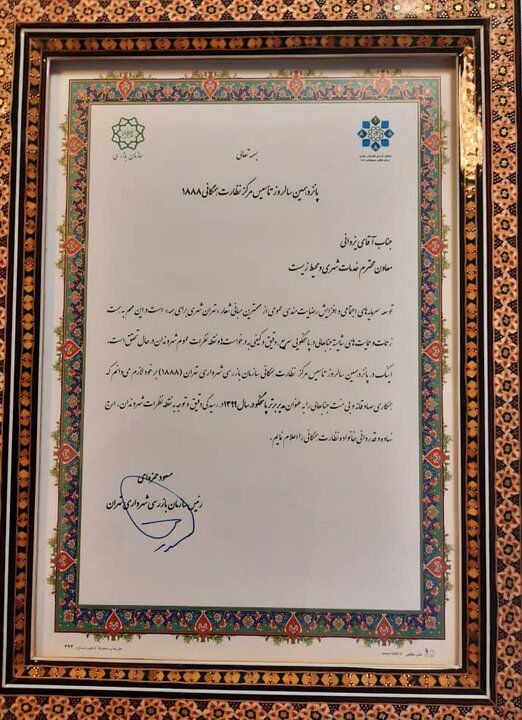 بسمه تعالی
سازمان بازرسی
پانزدهمین سالروز تاسیس مرکز نظارت همگانی ۱۸۸۸
جناب آقای یزدانی
معاون محترم خدمات شهری و محیط زیست
توسعه سرمایه‌های اجتماعی و افزایش رضایت مندی عمومی از مهمترین مبانی شعار «تهران شهری برای همه» است و این مهم به همت
زحمات و حمایت‌های شایسته جنابعالی در پاسخگویی سریع، دقیق و کیفی به درخواست‌ها و نقطه نظرات عموم شهروندان در حال تحقق است.
اینک در پانزدهمین سالروز تاسیس مرکز نظارت همگانی سازمان بازرسی شهرداری تهران (۱۸۸۸) بر خود لازم می‌دانم که
همکاری صادقانه و بی منت جنابعالی را به عنوان مدیر برتر پاسخگو در سال ۱۳۹۹ در رسیدگی دقیق و توجه به نقطه نظرات شهروندان، ارج
نهاده و قدردانی خانواده نظارت همگانی را اعلام نمایم.
مسعود حمزه‌ای
رئیس سازمان بازرسی شهرداری تهران